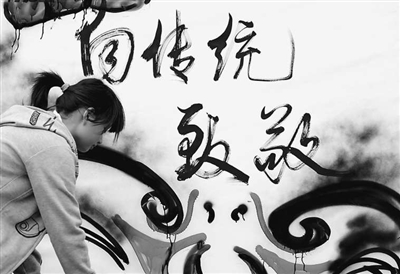 向传统
致敬